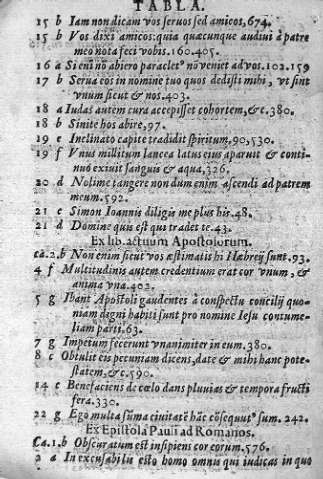 TABLA.
15 b Iam non dicam vos seruos sed amicos, 674.
15 b Vos dixi amicos: quia quacunque audiui à patre
meo nota feci vobis. 160. 405.
16 a Si eni nō abiero paraclet⁹ nō veniet ad vos. 102. 159
17 b Serua eos in nomine tuo quos dedisti mihi, vt sint
vnum sicut & nos. 403.
18 a Iudas autem cura accepisset cohortem, &c. 380.
18 b Sinite hos abire, 97.
19 e Inclinato capite tradidit spiritum, 90, 530.
19 f Vnus militum lancea latus eius aparuit & conti-
nuò exiuit sanguis & aqua, 326.
20 d Noli me tangere nondum enim ascendi ad patrem
meum. 592.
21 c Simon Ioannis diligis me plus his. 48.
21 d Domine quis est qui tradet te. 43.
Ex lib. actuum Apostolorum.
ca. 2. b Non enim sicut vos æstimatis hi Hæbrej sunt. 93.
4 f Multitudinis autem credentium erat cor vnum, &
anima vna. 402.
5 g Ibant Apostoli gaudentes à conspectu concilij quo-
niam digni habiti sunt pro nomine Iesu contume-
liam pati. 63.
7 g Impetum fecerunt vnanimiter in eum. 380.
8 c Obtulit eis pecuniam dicens, date & mihi hanc pote-
statem, &c. 590.
14 c Benefaciens de cœlo dans pluuias & tempora fructi
fera. 330.
22 g Ego multa sūma ciuitatē hāc cōsequut⁹ sum. 242.
Ex Epistola Pauli ad Romanos.
Ca. 1. b Obscuratum est insipiens cor eorum. 576.
2 a Inexcusabilis esto homo omnis qui iudicas in quo